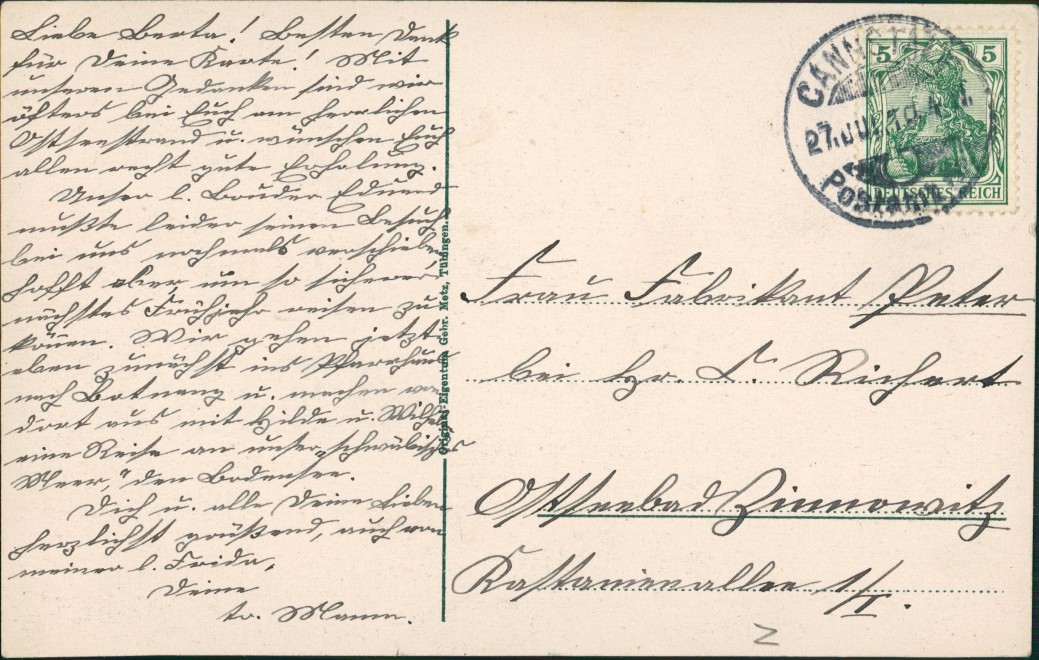 Liebe Berta! Besten Dank
für Deine Karte! Mit
unseren Gedanken sind wir
öfters bei Euch am herrlichen
Ostseestrand u. wünschen Euch
allen recht gute Erholung.
Unser l. Bruder Eduard
mußte leider seinen Besuch
bei uns nochmals verschieben
hofft aber um so sicherer
nächstes Frühjahr reisen zu
können. Wir gehen jetzt
eben zunächst ins Pfarrhaus
nach Botnang u. machen von
dort aus mit Hilde u.
eine Reise an unser „schwäbisches
Meer," den Bodensee.
Dich u. alle Deine Lieben
herzlichst grüßend, auch von
meiner l. Frida,
Deine
tr.
Original-Eigentum Gebr. Metz, Tübingen.
CANNSTATT
27.JUL.10.
POSTAMT
5 5
DEUTSCHES REICH
Frau Fabrikant Peter
bei Hr. L. Richert
Ostseebad Zinnowitz
Kastanienallee 1/I.
Z